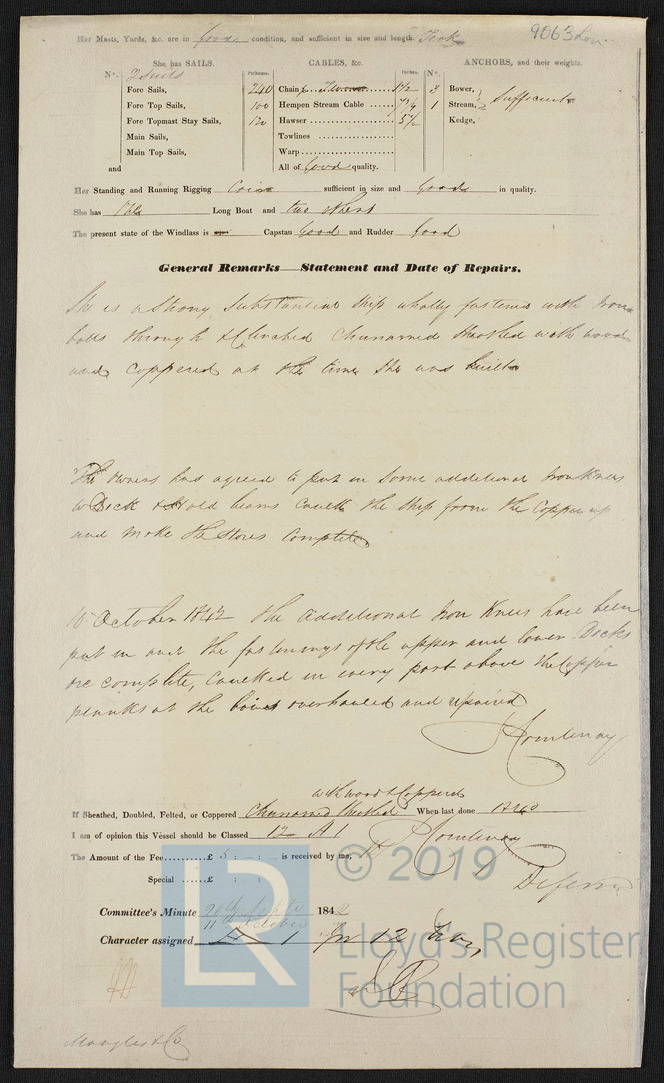 9063 Lon
Her Masts, Yards, &c. are in good condition, and sufficient in size and length. Teak
She has SAILS. CABLES, &c. ANCHORS, and their weights.
N°. 2 Suits Fathoms. Inches. N°.
Fore Sails, 240 Chain 1 1/2 3 Bower,
Fore Top Sails, 100 Hempen Stream Cable 7 1/4 1 Stream, Sufficient
Fore Topmast Stay Sails, 120 Hawser 5 1/2 Kedge,
Main Sails, Towlines
Main Top Sails, Warp
and All of Good quality.
Her Standing and Running Rigging sufficient in size and Good in quality.
She has Long Boat and two others
The present state of the Windlass is Capstan Good and Rudder Good
General Remarks—Statement and Date of Repairs.
She is a Strong Substantial Ship wholly fastened with Iron
bolts through & Clenched Chunamed Sheathed with wood
and Coppered at the time She was built
The owners has agreed to put in Some additional Iron Knees
to Deck & Hold beams Caulk the Ship from the Copper up
and make the Stores Complete
10 October 1842 The additional Iron Knees have been
put in and the fastenings of the upper and lower Decks
are complete, Caulked in every part above the Copper
planks at the bows overhauled and repaired
with wood & Coppered
If Sheathed, Doubled, Felted, or Coppered Chunamed Sheathed When last done 1840
I am of opinion this Vessel should be Classed 12 A 1
The Amount of the Fee £ 5 : - : - is received by me,
Special £ : :
Committee's Minute 20th Septr 1842
11th October
Character assigned A 1 for 12 Years
© 2019
Lloyd's Register
Foundation
LR